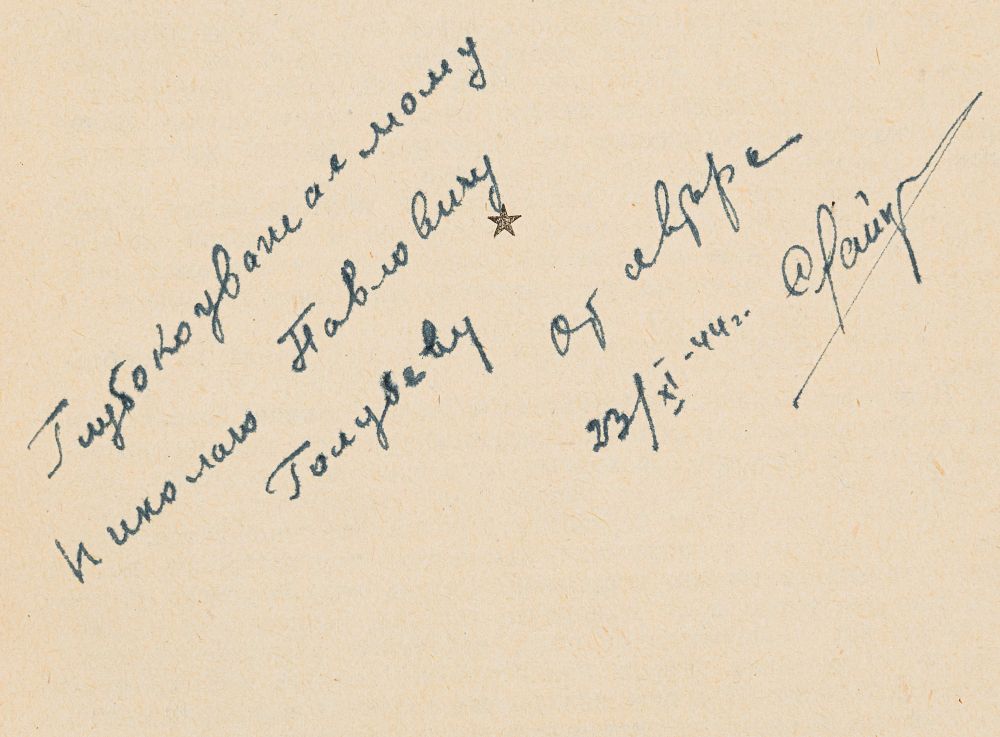 Глубокоуважаемому
Николаю Павловичу
Голубеву от автора
23/XI-44г.